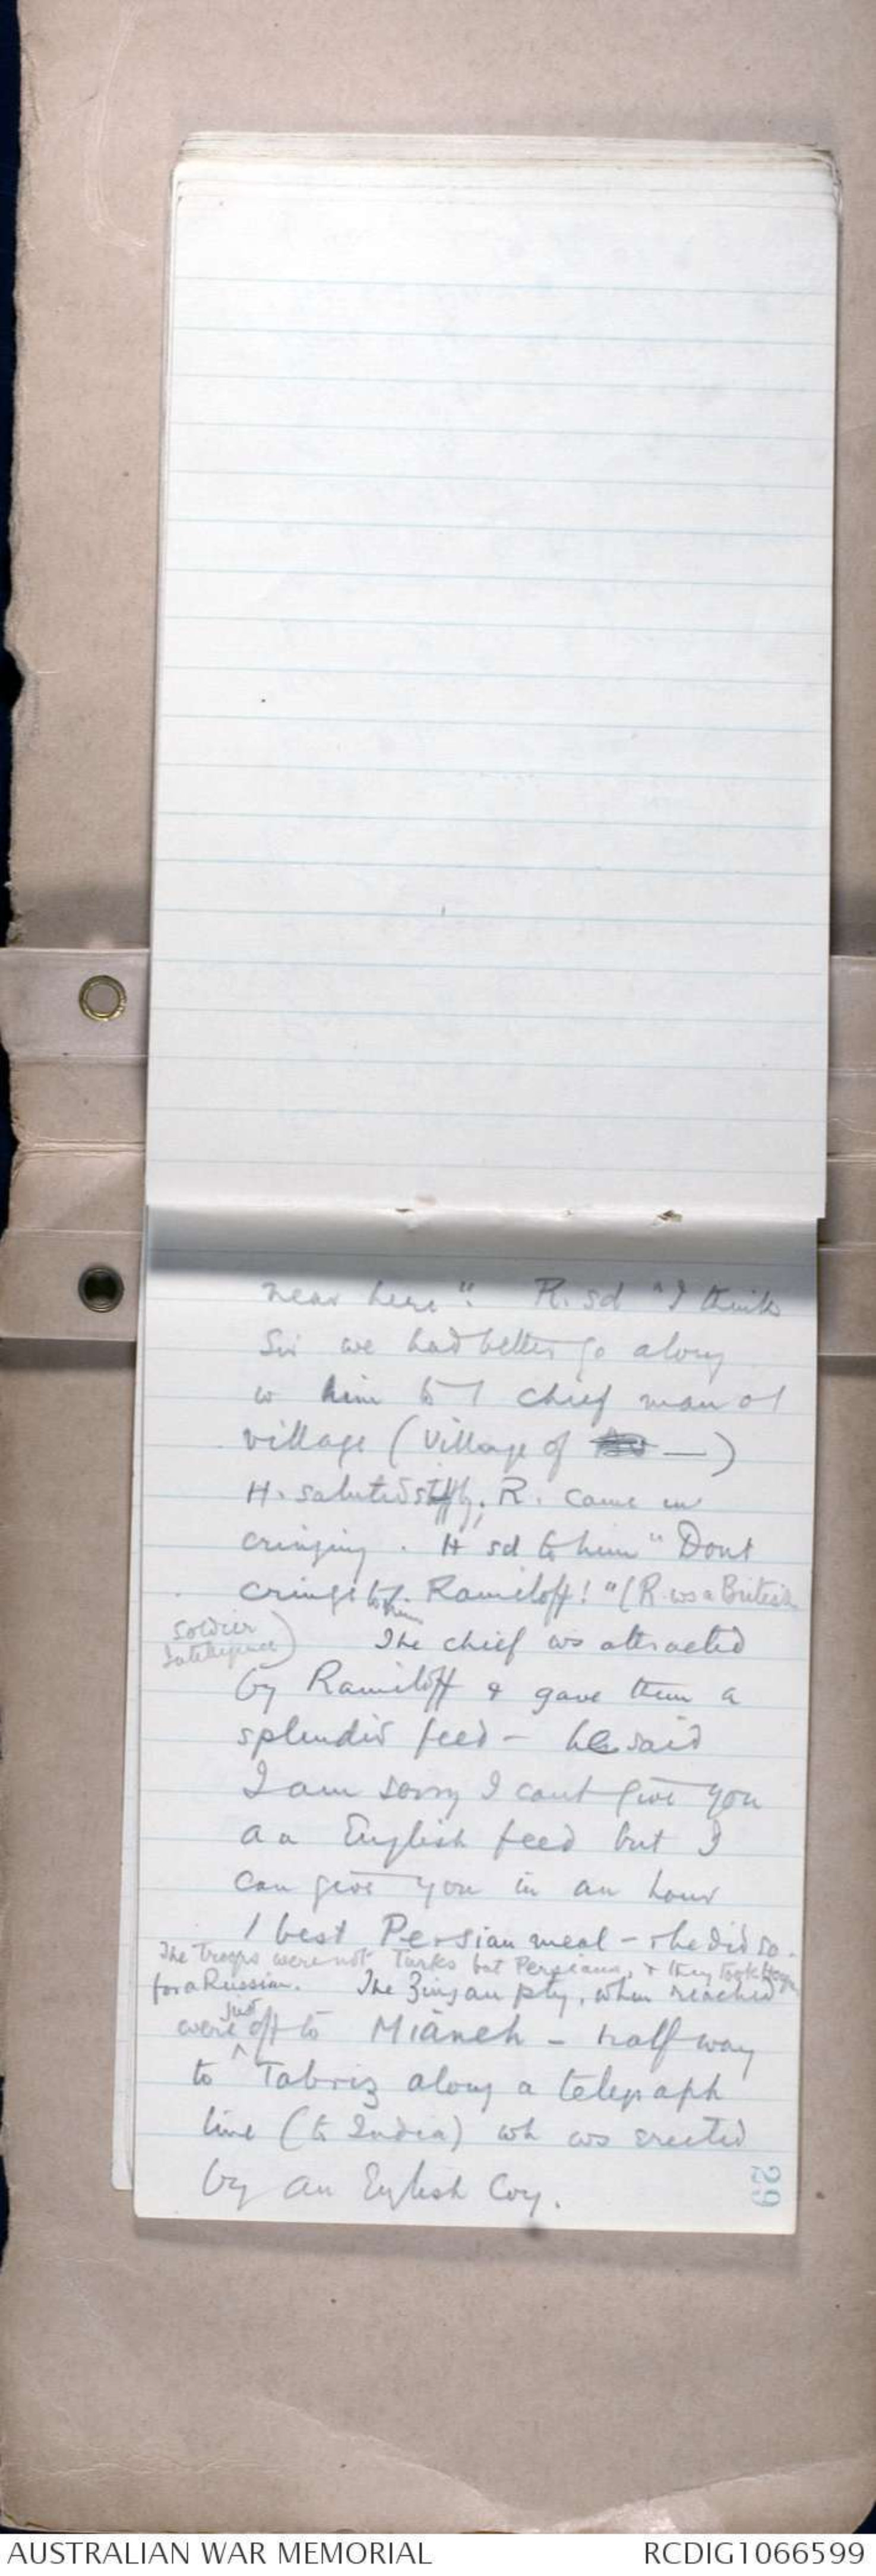 near here". R. sd "I think
Sir we had better go along
w him to / chief man of
village (Village of —)
H. saluted stiffly; R. came in
cringing. H sd to him "Dont
cringe to him Ramiloff!" (R. ws a British
soldier
Intelligence)
The chief ws attracted
by Ramiloff & gave them a
splendid feed - he said
I am sorry I cant give you
an English feed but I
can give you in an hour
/ best Persian meal - & he did so.
The troops were not Turks but Persians, & they took
for a Russian. The Zinjan pty, when reached
were just off to Miäneh - half way
to Tabriz along a telegraph
line (to India) wh ws erected
by an English Coy.
29
AUSTRALIAN WAR MEMORIAL
RCDIG1066599